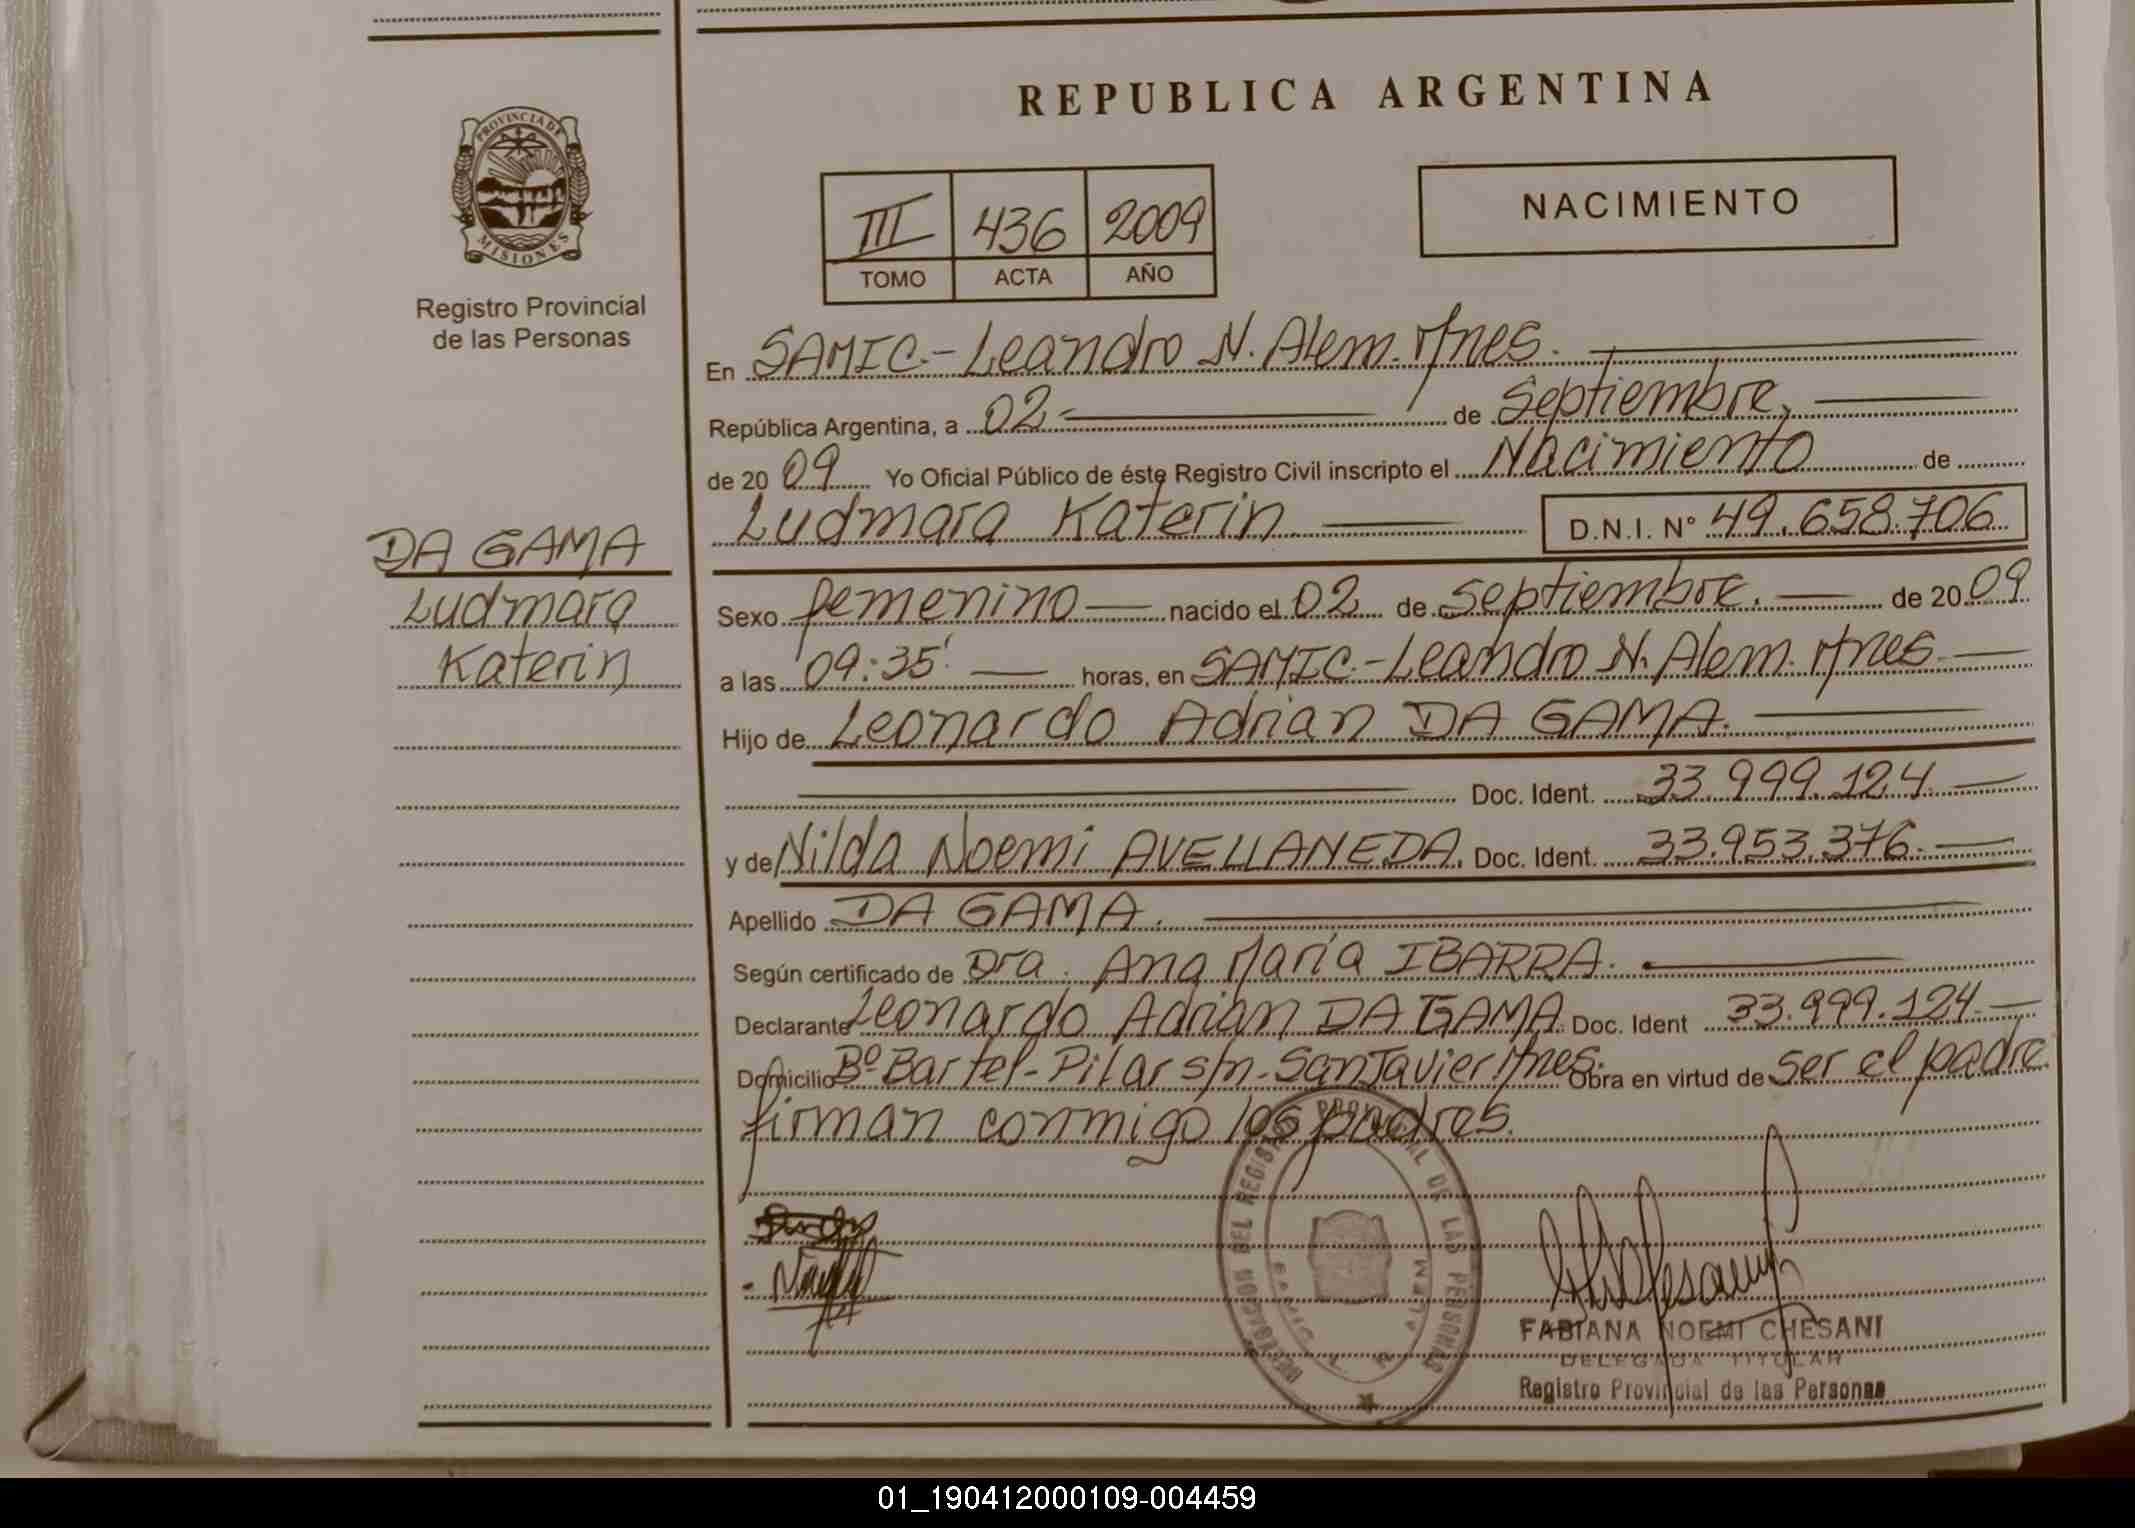 REPUBLICA ARGENTINA
PROVINCIA DE
MISIONES
Registro Provincial
de las Personas
III 436 2009
TOMO ACTA AÑO
NACIMIENTO
En SAMIC.-Leandro N. Alem. Mnes.
República Argentina, a 02 de Septiembre,
de 20 09 Yo Oficial Público de éste Registro Civil inscripto el Nacimiento de
Ludmara Katerin D.N.I. N° 49.658.706
DA GAMA
Ludmara
Katerin
Sexo femenino nacido el 02 de Septiembre. de 20 09
a las 09:35' horas, en SAMIC.-Leandro N. Alem. Mnes.
Hijo de Leonardo Adrian DA GAMA.
Doc. Ident. 33.999.124.
y de Nilda Noemi AVELLANEDA. Doc. Ident. 33.953.376.
Apellido DA GAMA.
Según certificado de Dra. Ana María IBARRA.
Declarante Leonardo Adrián DA GAMA. Doc. Ident 33.999.124.
Domicilio Bº Bartel-Pilar s/n-San Javier Mnes. Obra en virtud de ser el padre
firman conmigo los padres.
DELEGACION DEL REGISTRO PROVINCIAL DE LAS PERSONAS
SAMIC L. N. ALEM
FABIANA NOEMI CHESANI
DELEGADA TITULAR
Registro Provincial de las Personas
01_190412000109-004459